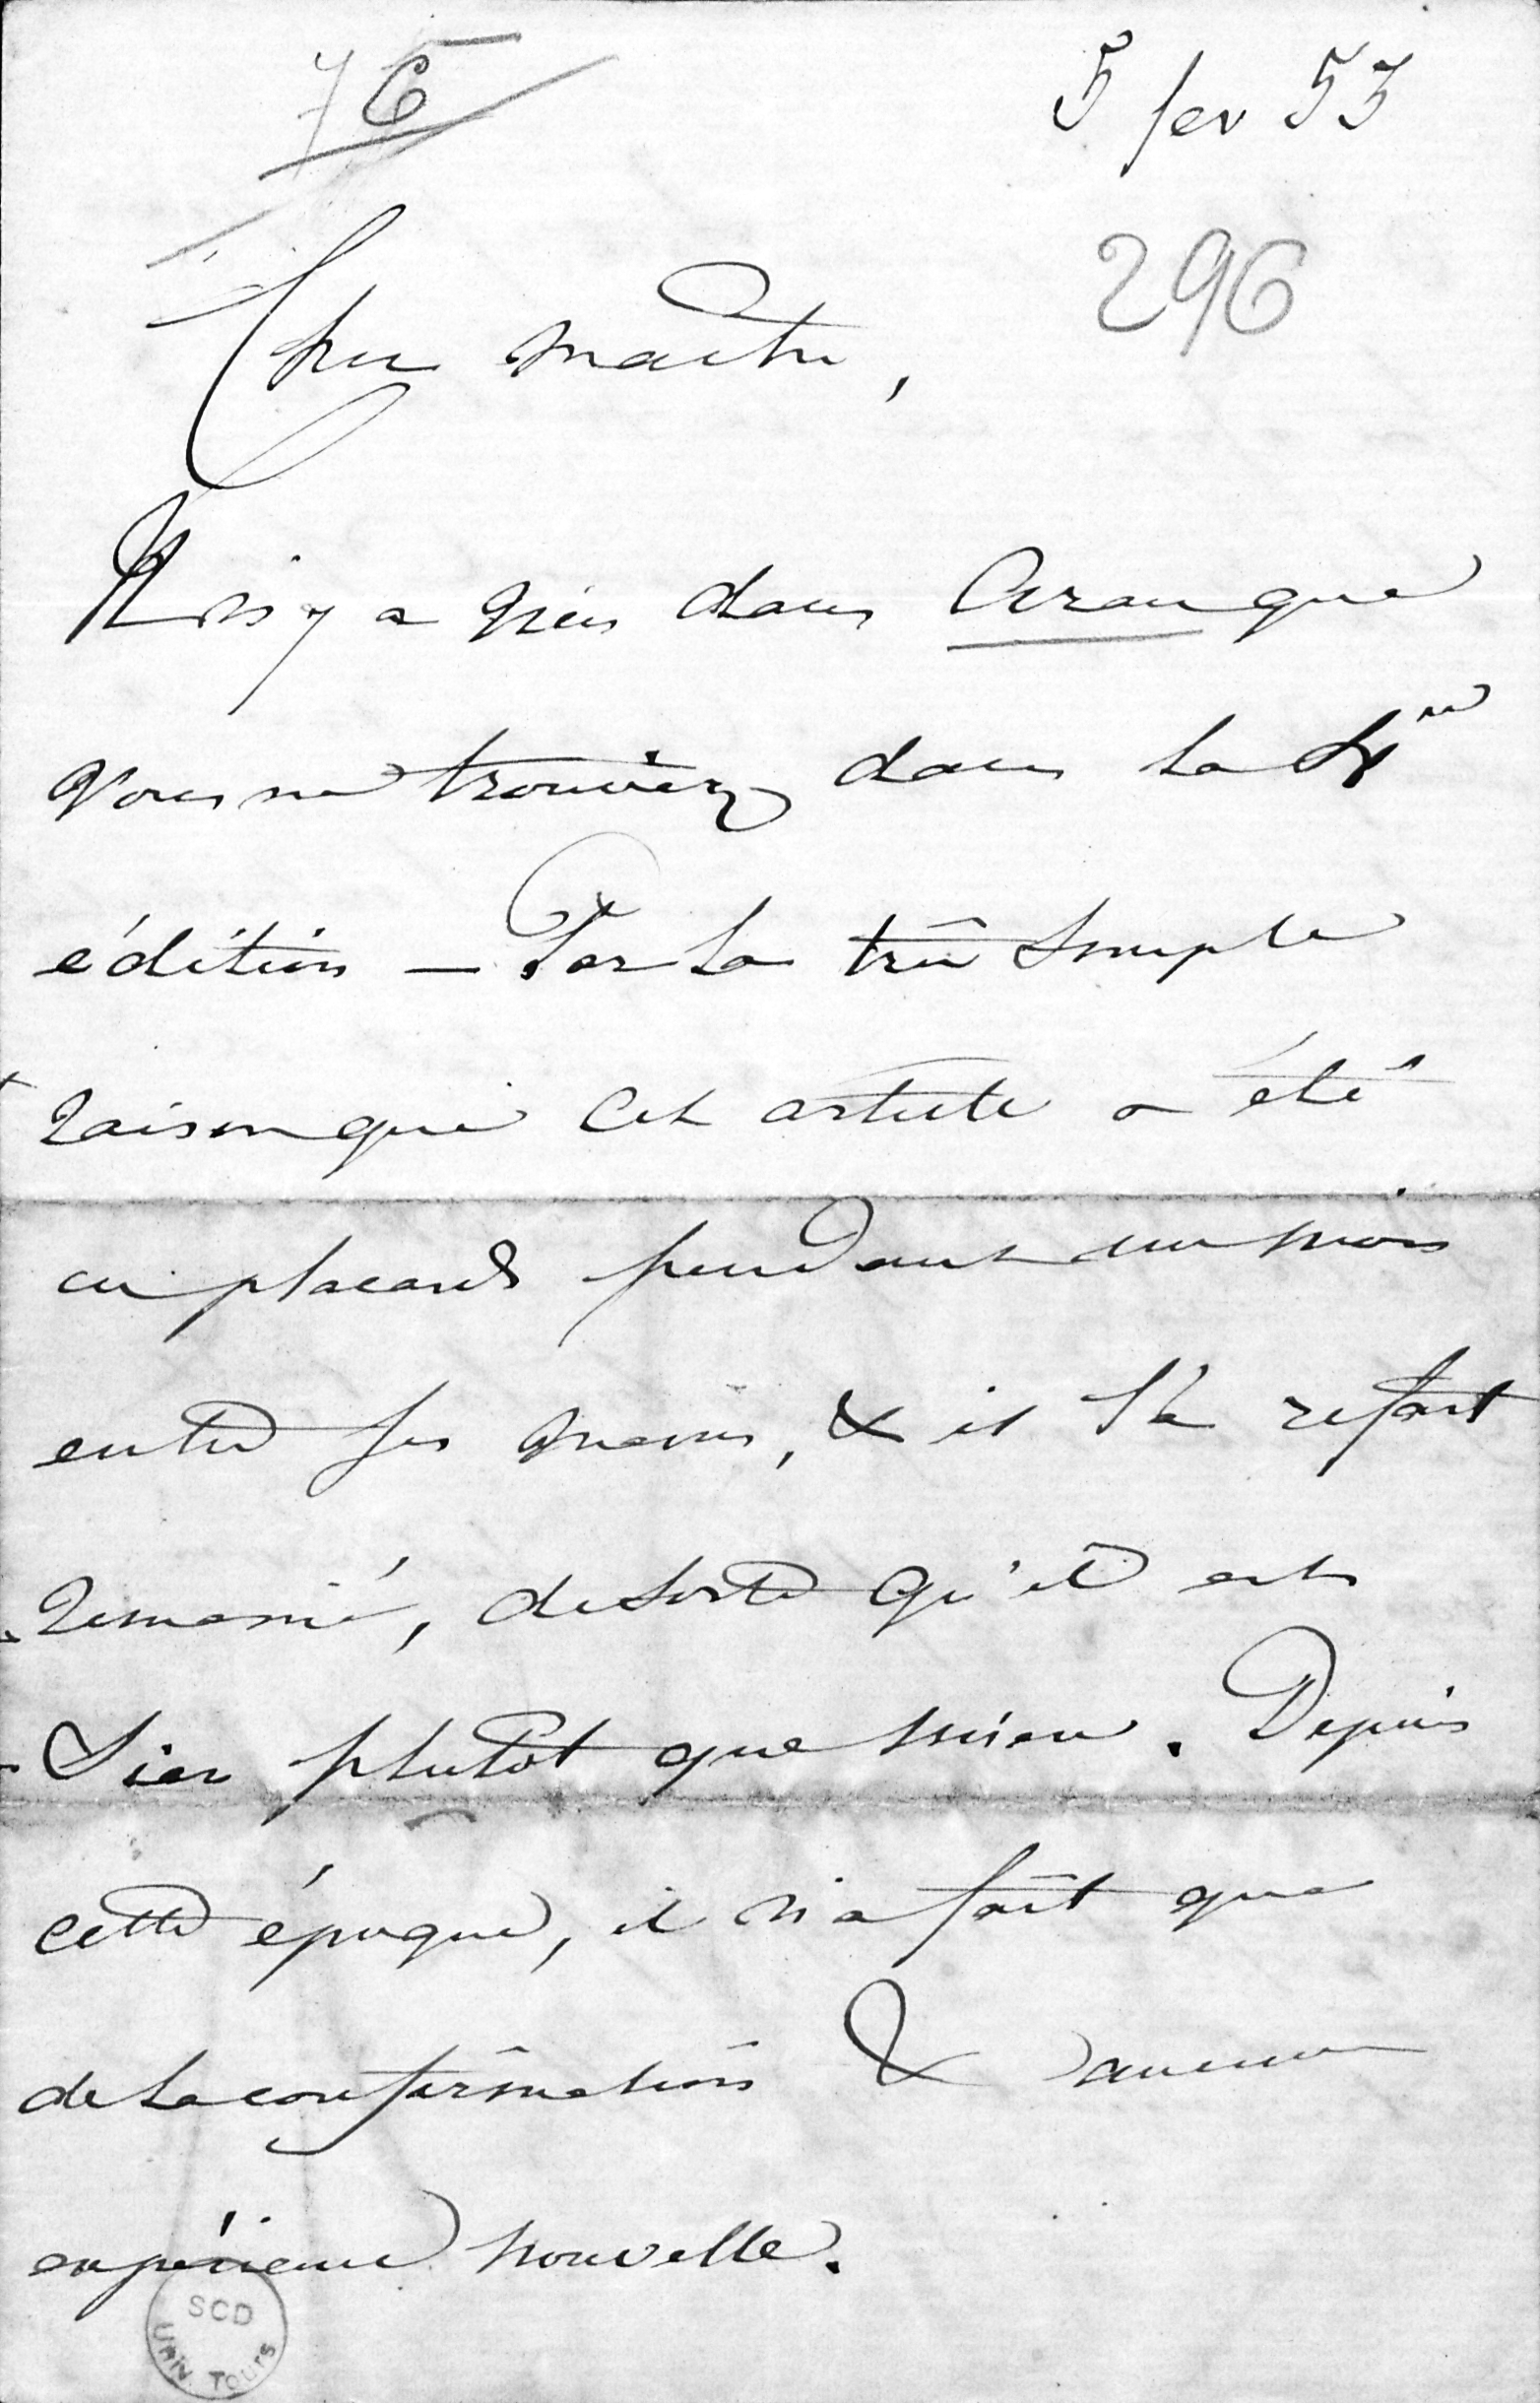 76
5 fev 53
296
Cher maitre,
Il n'y a rien dans Aran que
vous ne trouviez dans la 4me
édition — Par la très simple
raison que cet article a été
en placards pendant un mois
entre ses mains, & il l'a refait
remanié, de sorte qu'il est
sien plutot que mien. Depuis
cette époque, il n'a fait que
de la confirmation & aucune
expérience nouvelle.
SCD
UNIV. TOURS